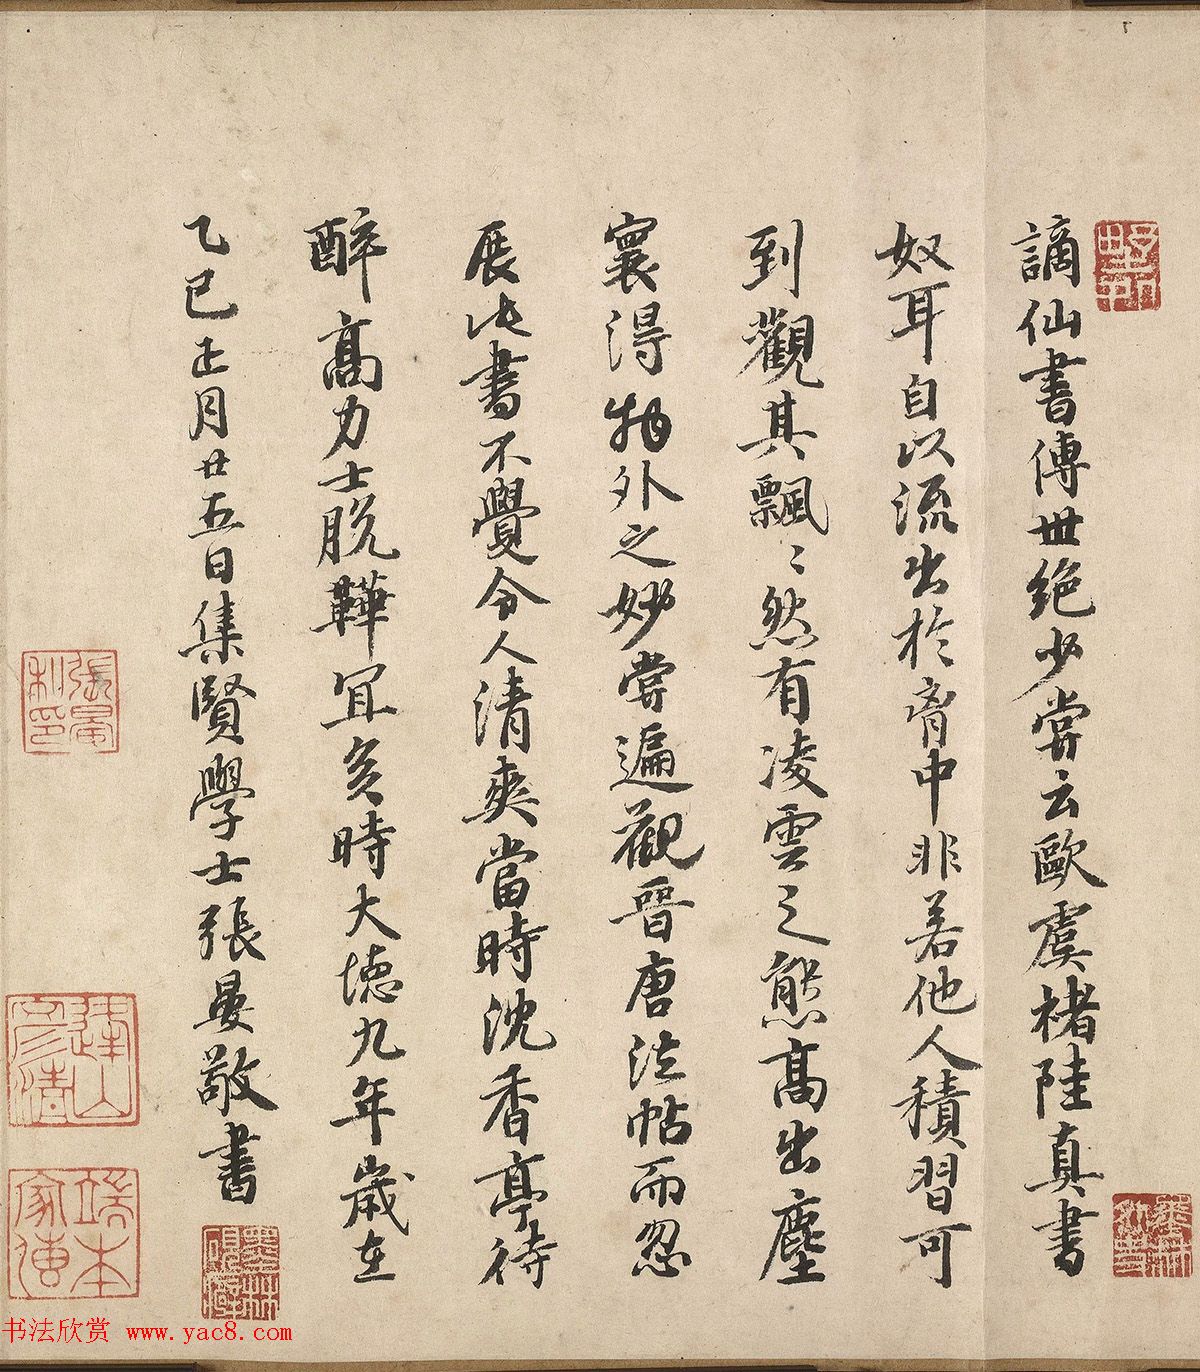 謫仙書傳世絶少嘗云歐虞褚陸真書
奴耳自以流出於胷中非若他人積習可
到觀其飄〻然有凌雲之態高出塵
寰得物外之妙嘗遍觀晉唐法帖而忽
展此書不覺令人清爽當時沈香亭待
醉高力士脱鞾冝矣時大德九年歲在
乙巳正月廿五日集賢學士張晏敬書
張晏私印
端本家傳
墨林硯癖
书法欣赏 www.yac8.com